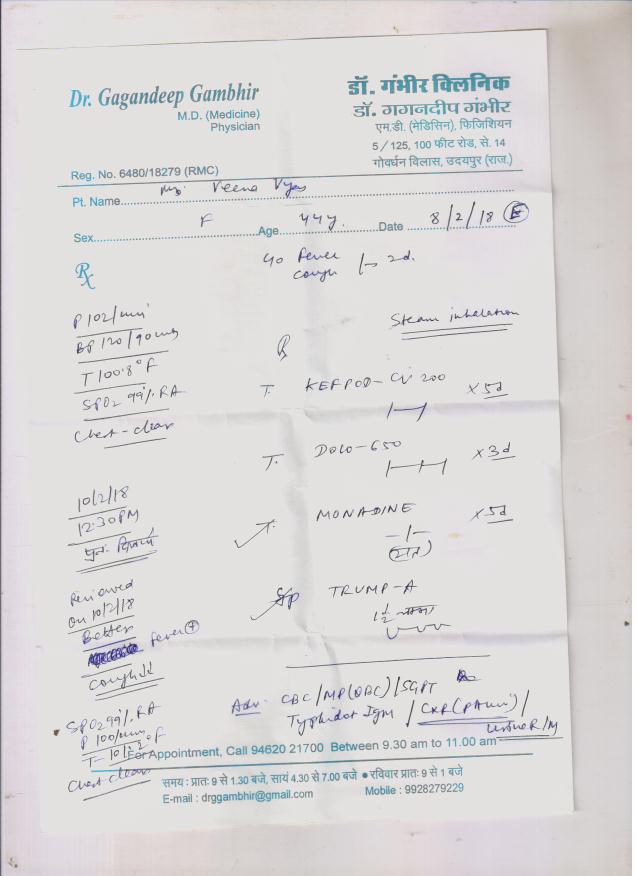 Dr. Gagandeep Gambhir
M.D. (Medicine)
Physician
Reg. No. 6480/18279 (RMC)
डॉ. गंभीर क्लिनिक
डॉ. गगनदीप गंभीर
एम.डी. (मेडिसिन), फिजिशियन
5 / 125, 100 फीट रोड, से. 14
गोवर्धन विलास, उदयपुर (राज.)
Pt. Name Veena Vyas
Sex F Age 44y. Date 8/2/18
Rx
Fever
cough /— 2d.
P 102/min
BP 120/90
T 100.8°F
SPO2 99% RA
Chest - clear
Steam inhalation
Rx
T. KEFPOD-CV 200 x 5d
T. DOLO-650 x 3d
T. MONADINE x 5d
(रात)
TRUMP-A
1½
10/2/18
12:30PM
Reviewed
on 10/2/18
Better
fever (+)
cough ↓↓
SPO2 99% RA
P 100/min
T-
Chest clear
Adv: CBC / MP(QBC) / SGPT
Typhidot IgM / CXR (PA view) /
Urine R/M
For Appointment, Call 94620 21700 Between 9.30 am to 11.00 am
समय : प्रातः 9 से 1.30 बजे, सायं 4.30 से 7.00 बजे ● रविवार प्रातः 9 से 1 बजे
E-mail : drggambhir@gmail.com Mobile : 9928279229